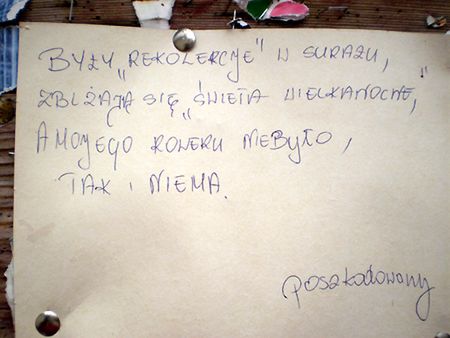 BYŁY „REKOLEKCJE” W SURAŻU,
ZBLIŻAJĄ SIĘ „ŚWIĘTA WIELKANOCNE,”
A MOJEGO ROWERU NIEBYŁO,
TAK I NIEMA.
poszkodowany